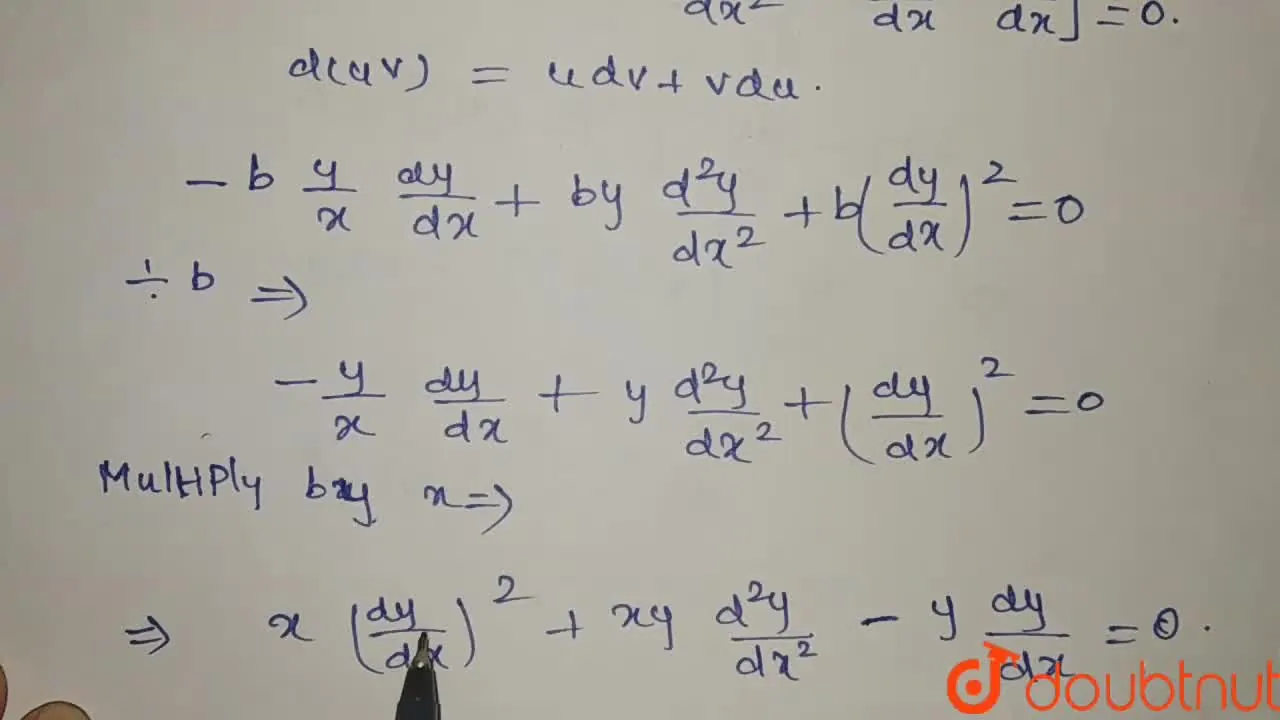 dx² dx dx] = 0.
d(uv) = udv + vdu.
- b y/x dy/dx + by d²y/dx² + b(dy/dx)² = 0
÷ b ⇒
- y/x dy/dx + y d²y/dx² + (dy/dx)² = 0
Multiply by x ⇒
⇒ x (dy/dx)² + xy d²y/dx² - y dy/dx = 0.
doubtnut